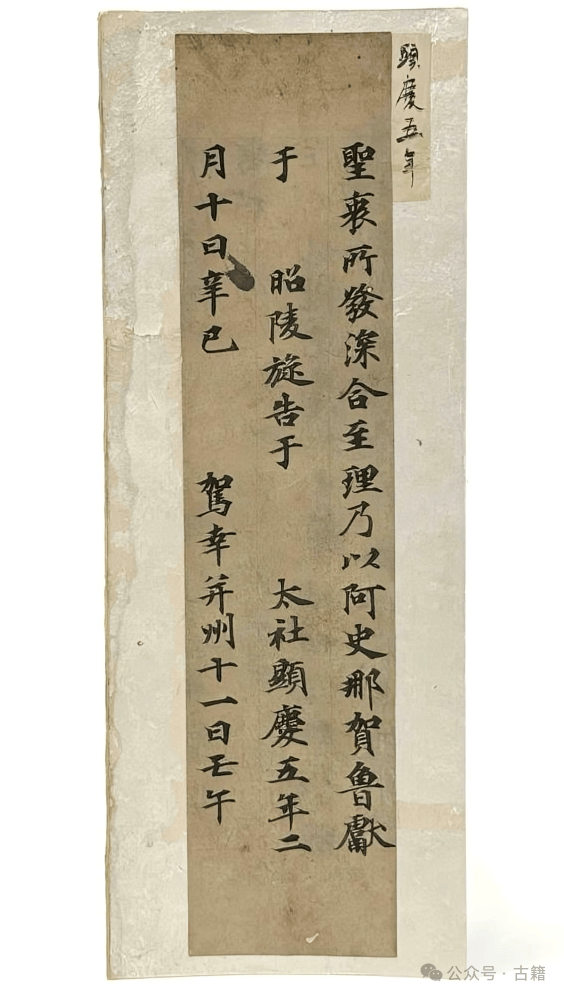 顯慶五年
聖衷所發深合至理乃以阿史那賀魯獻
于 昭陵旋告于 太社顯慶五年二
月十日辛巳 駕幸并州十一日壬午
公众号·古籍